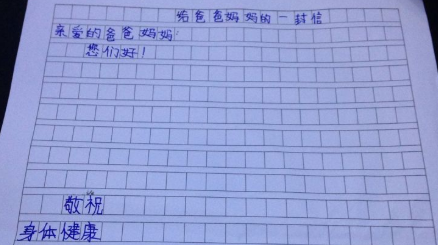 给爸爸妈妈的一封信
亲爱的爸爸妈妈:
您们好!
敬祝
身体健康